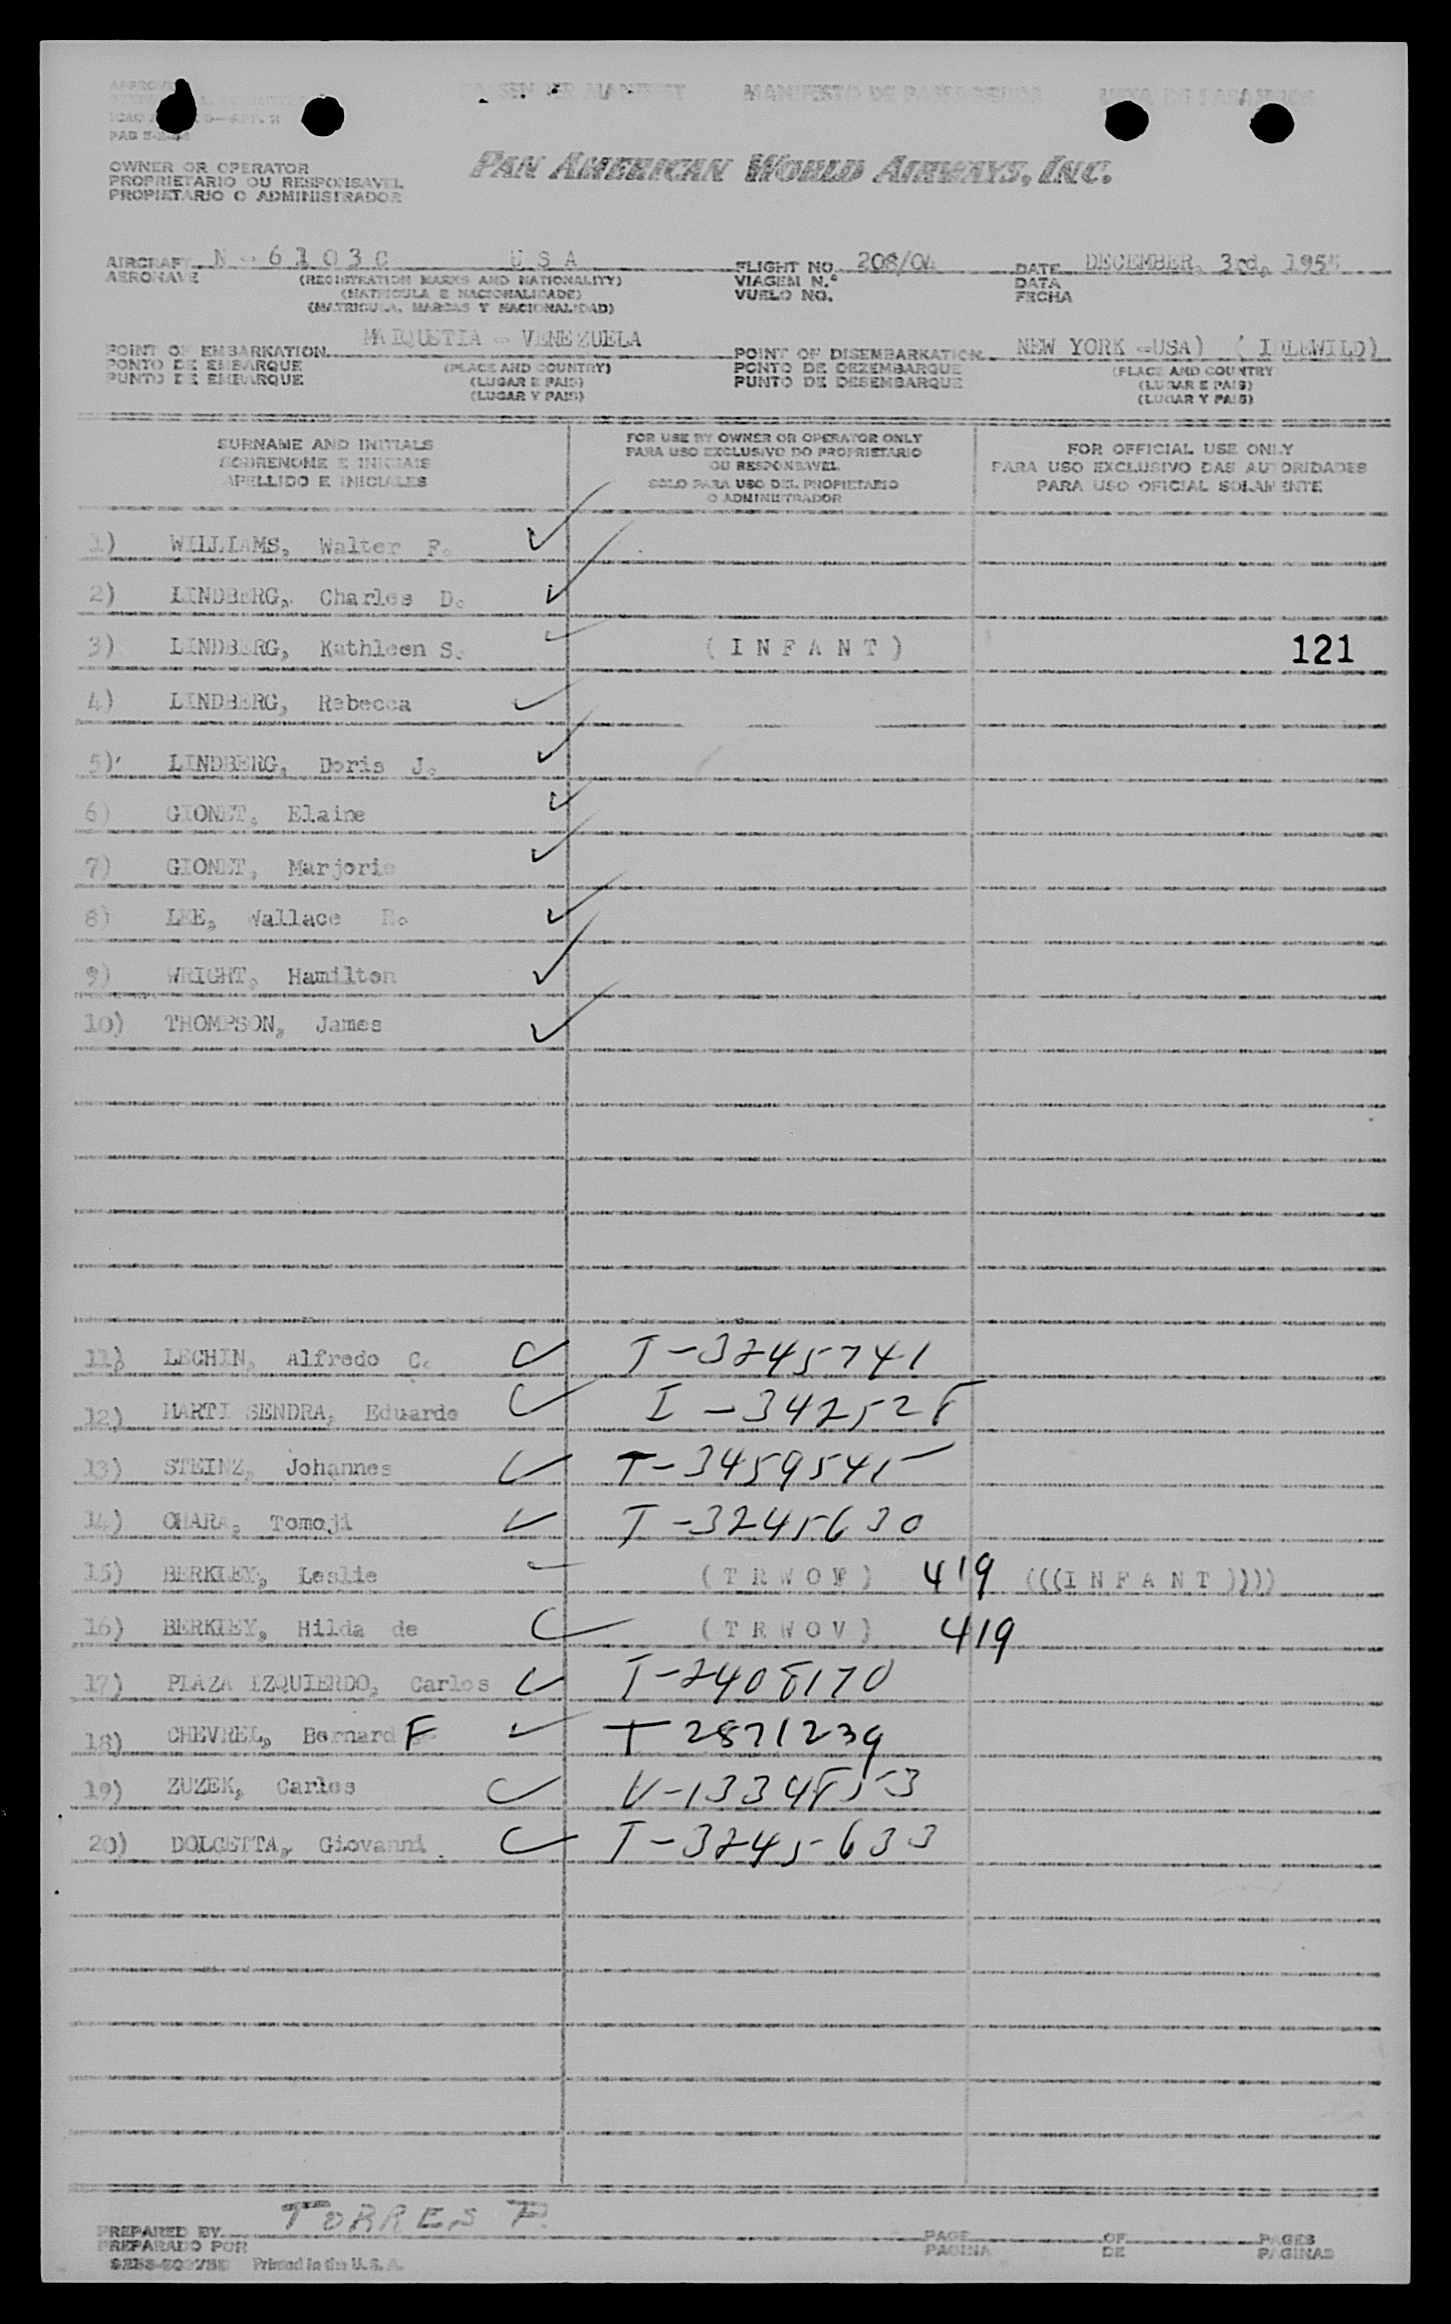 PASSENGER MANIFEST MANIFESTO DE PASSAGEIROS LISTA DE PASAJEROS
OWNER OR OPERATOR
PROPRIETARIO OU RESPONSAVEL
PROPIETARIO O ADMINISTRADOR
PAN AMERICAN WORLD AIRWAYS, INC.
AIRCRAFT N-6103C U S A FLIGHT NO. 208/04 DATE DECEMBER, 3rd, 1955
AERONAVE (REGISTRATION MARKS AND NATIONALITY) VIAGEM N.º DATA
(MATRICULA E NACIONALIDADE) VUELO NO. FECHA
(MATRICULA, MARCAS Y NACIONALIDAD)
POINT OF EMBARKATION MAIQUETIA - VENEZUELA POINT OF DISEMBARKATION NEW YORK -USA) ( IDLEWILD)
PONTO DE EMBARQUE (PLACE AND COUNTRY) PONTO DE DEZEMBARQUE (PLACE AND COUNTRY
PUNTO DE EMBARQUE (LUGAR E PAIS) PUNTO DE DESEMBARQUE (LUGAR E PAIS)
(LUGAR Y PAIS) (LUGAR Y PAIS)
SURNAME AND INITIALS FOR USE BY OWNER OR OPERATOR ONLY FOR OFFICIAL USE ONLY
SOBRENOME E INICIAIS PARA USO EXCLUSIVO DO PROPRIETARIO PARA USO EXCLUSIVO DAS AUTORIDADES
OU RESPONSAVEL
APELLIDO E INICIALES SOLO PARA USO DEL PROPIETARIO PARA USO OFICIAL SOLAMENTE
O ADMINISTRADOR
1) WILLIAMS, Walter F.
2) LINDBERG, Charles D.
3) LINDBERG, Kathleen S. ( I N F A N T ) 121
4) LINDBERG, Rebecca
5) LINDBERG, Doris J.
6) GIONET, Elaine
7) GIONET, Marjorie
8) LEE, Wallace
9) WRIGHT, Hamilton
10) THOMPSON, James
11) LECHIN, Alfredo C. T-3245741
12) MARTI SENDRA, Eduardo I-342528
13) STEINZ, Johannes T-3459545
14) OHARA, Tomoji T-3245630
15) BERKLEY, Leslie ( T R W O V ) 419 (((I N F A N T ))))
16) BERKLEY, Hilda de ( T R W O V ) 419
17) PLAZA IZQUIERDO, Carlos T-2408170
18) CHEVREL, Bernard F T 2871239
19) ZUZEK, Carlos V-1334853
20) DOLCETTA, Giovanni T-3245633
PREPARED BY TORRES F. PAGE OF PAGES
PREPARADO POR PAGINA DE PAGINAS
Printed in the U. S. A.